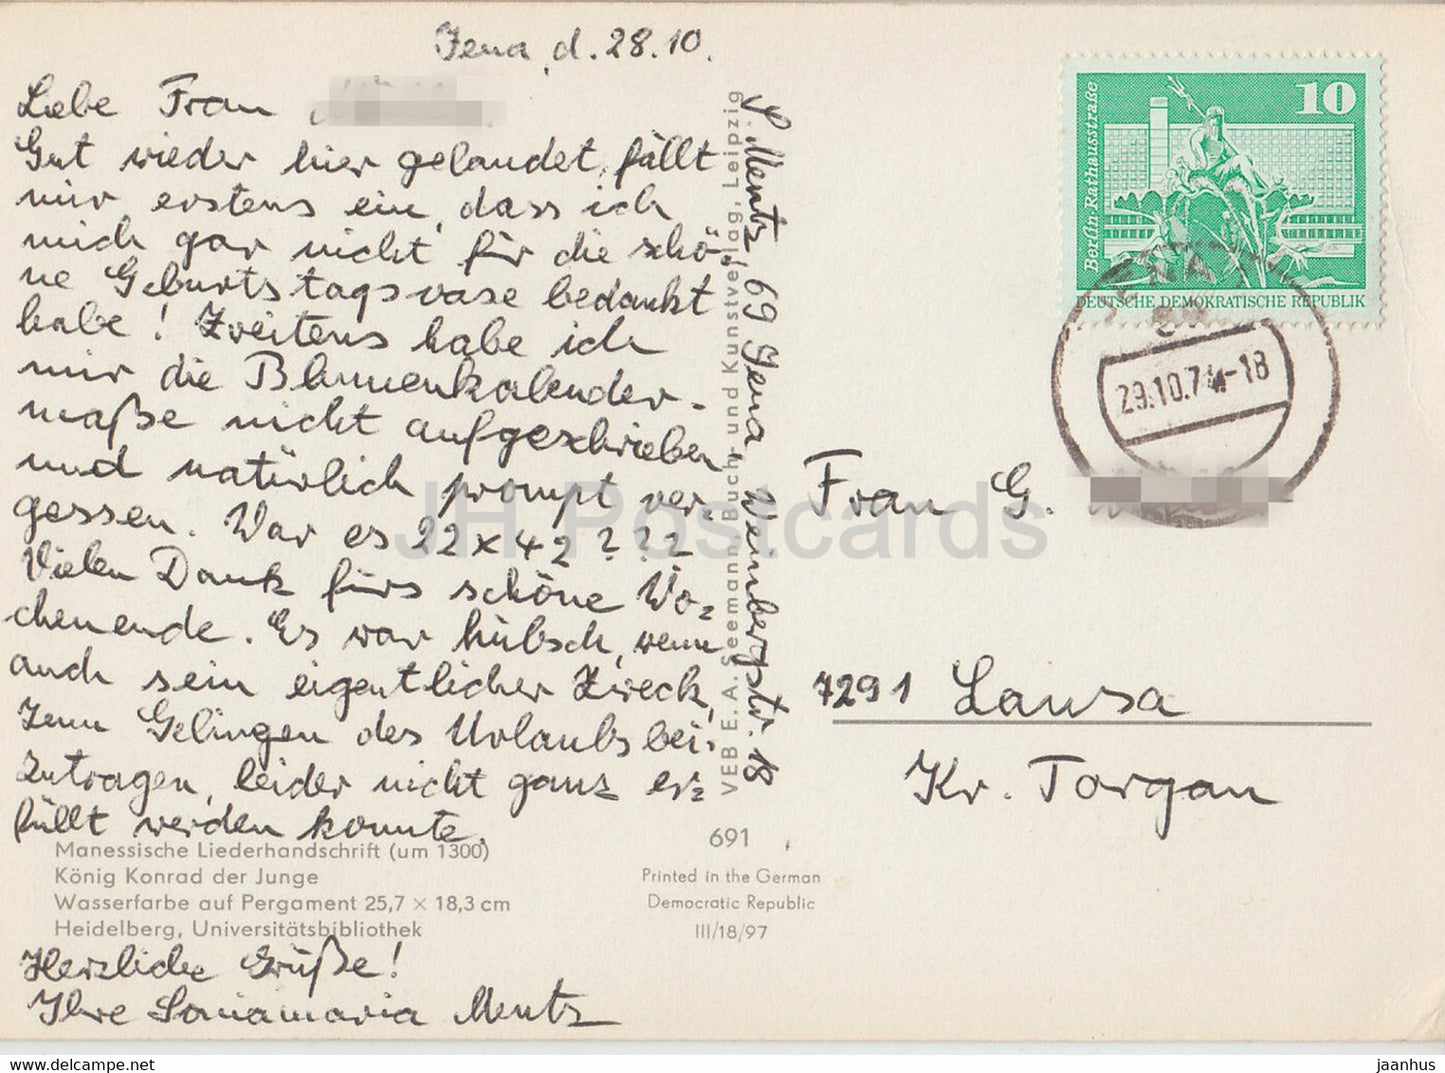 Jena, d. 28.10.
Liebe Frau
Gut wieder hier gelandet, fällt
mir erstens ein, dass ich
mich gar nicht für die schö-
ne Geburtstagsvase bedankt
habe! Zweitens habe ich
mir die Blumenkalender-
maße nicht aufgeschrieben
und natürlich prompt ver-
gessen. War es 22x42???
Vielen Dank fürs schöne Wo-
chenende. Es war hübsch, wenn
auch sein eigentlicher Zweck,
zum Gelingen des Urlaubs bei-
zutragen, leider nicht ganz er-
füllt werden konnte.
Manessische Liederhandschrift (um 1300)
König Konrad der Junge
Wasserfarbe auf Pergament 25,7 × 18,3 cm
Heidelberg, Universitätsbibliothek
Herzliche Grüße!
Ihre Mentz
691
Printed in the German
Democratic Republic
III/18/97
VEB E. A. Seemann, Buch- und Kunstverlag, Leipzig
S. Mentz, 69 Jena, Weinbergstr. 18
10
Berlin-Rathausstraße
DEUTSCHE DEMOKRATISCHE REPUBLIK
JENA
29.10.74-18
Frau G.
7291 Lausa
Kr. Torgau
JH Postcards
hippostcard.com/store/jhpostcards
jaanhus